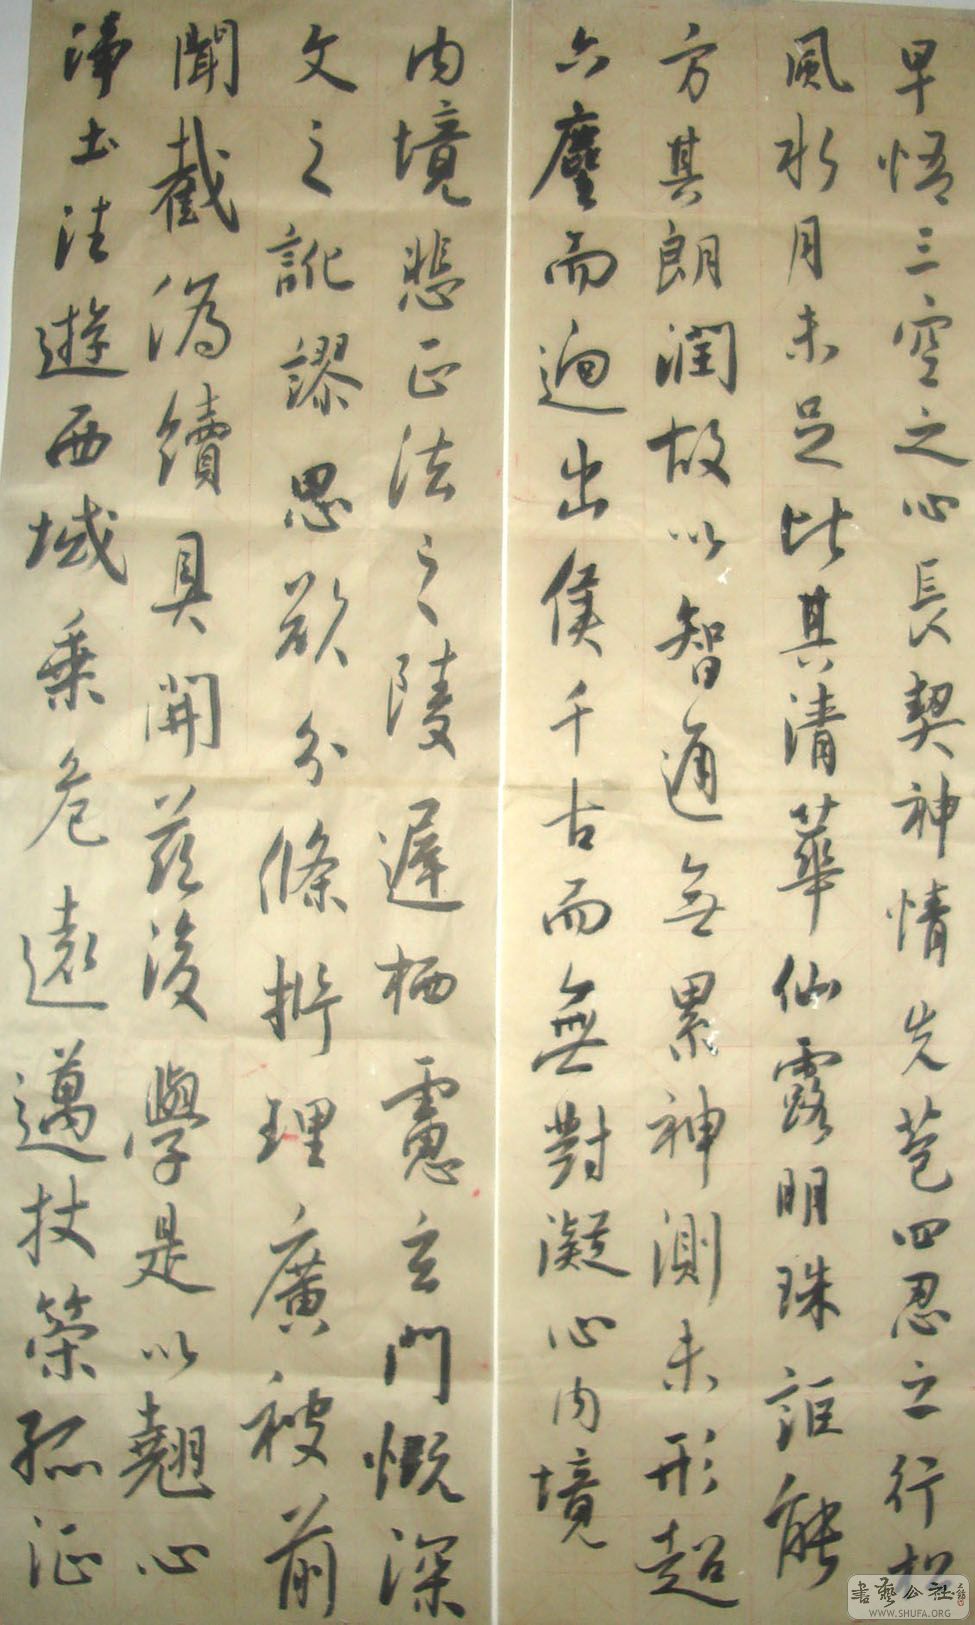 早悟三空之心長契神情先苞四忍之行松
風水月未足比其清華仙露明珠詎能
方其朗潤故以智通無累神測未形超
六塵而迥出隻千古而無對凝心內境
內境悲正法之陵遲栖慮玄門慨深
文之訛謬思欲分條析理廣被前
聞截偽續真開茲後學是以翹心
淨土法遊西域乗危遠邁杖策孤征
書藝公社
WWW.SHUFA.ORG